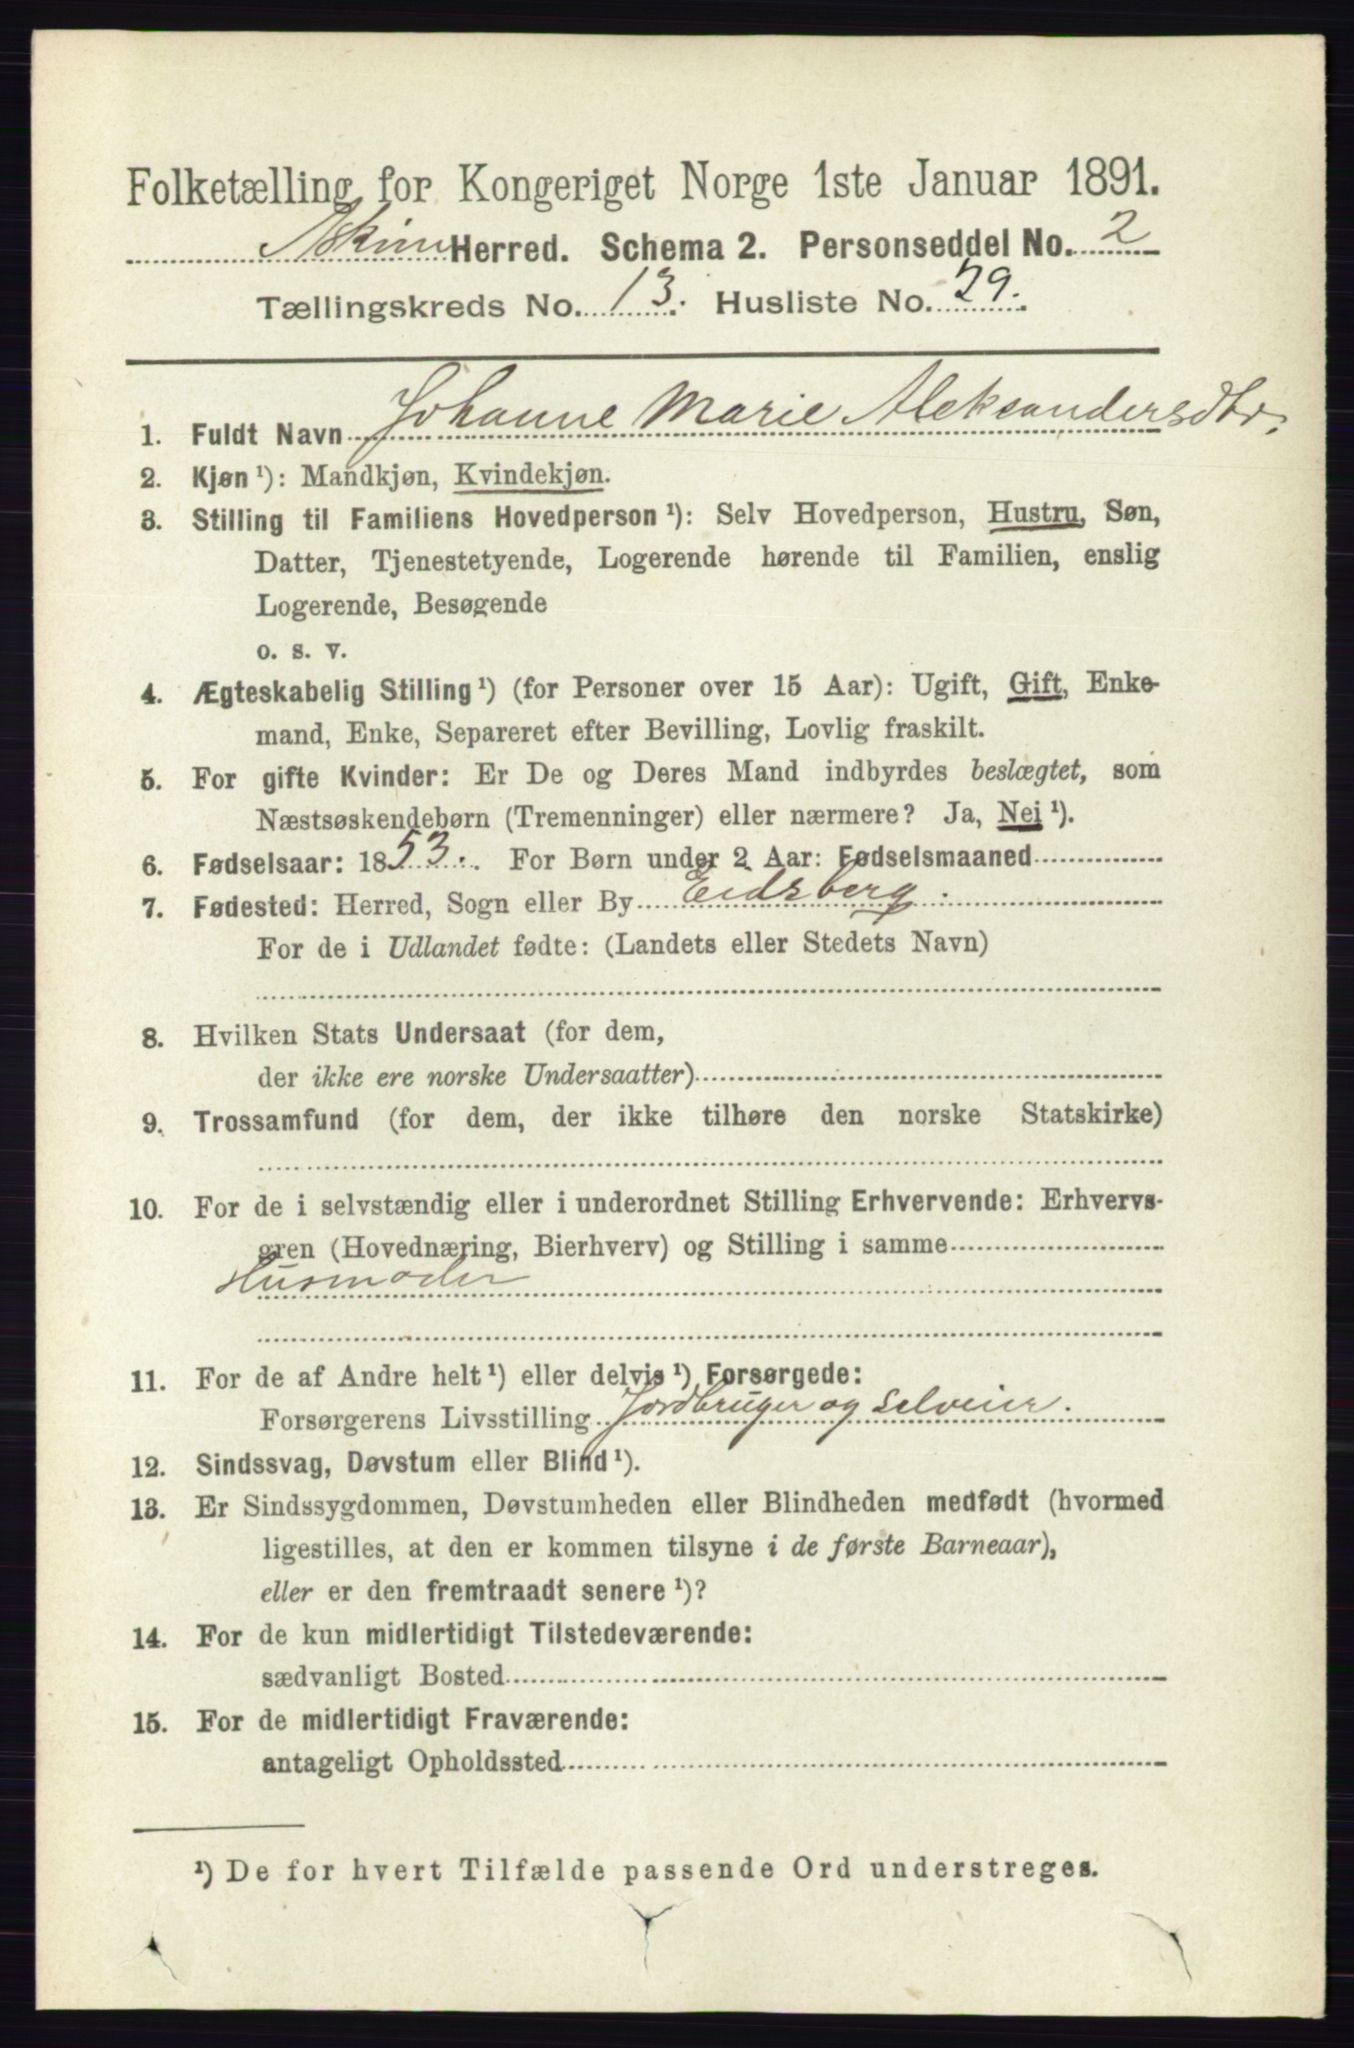 Folketælling for Kongeriget Norge 1ste Januar 1891.
Askim Herred. Schema 2. Personseddel No. 2
Tællingskreds No. 13. Husliste No. 29.
1. Fuldt Navn Johanne Marie Aleksandersdtr.
2. Kjøn¹): Mandkjøn, Kvindekjøn.
3. Stilling til Familiens Hovedperson¹): Selv Hovedperson, Hustru, Søn,
Datter, Tjenestetyende, Logerende hørende til Familien, enslig
Logerende, Besøgende
o. s. v.
4. Ægteskabelig Stilling¹) (for Personer over 15 Aar): Ugift, Gift, Enke-
mand, Enke, Separeret efter Bevilling, Lovlig fraskilt.
5. For gifte Kvinder: Er De og Deres Mand indbyrdes beslægtet, som
Næstsøskendebørn (Tremenninger) eller nærmere? Ja, Nei¹).
6. Fødselsaar: 1853. For Børn under 2 Aar: Fødselsmaaned
7. Fødested: Herred, Sogn eller By Eidsberg.
For de i Udlandet fødte: (Landets eller Stedets Navn)
8. Hvilken Stats Undersaat (for dem,
der ikke ere norske Undersaatter)
9. Trossamfund (for dem, der ikke tilhøre den norske Statskirke)
10. For de i selvstændig eller i underordnet Stilling Erhvervende: Erhvervs-
gren (Hovednæring, Bierhverv) og Stilling i samme
Husmoder
11. For de af Andre helt¹) eller delvis¹) Forsørgede:
Forsørgerens Livsstilling Jordbruger og selveier.
12. Sindssvag, Døvstum eller Blind¹).
13. Er Sindssygdommen, Døvstumheden eller Blindheden medfødt (hvormed
ligestilles, at den er kommen tilsyne i de første Barneaar),
eller er den fremtraadt senere¹)?
14. For de kun midlertidigt Tilstedeværende:
sædvanligt Bosted
15. For de midlertidigt Fraværende:
antageligt Opholdssted
¹) De for hvert Tilfælde passende Ord understreges.